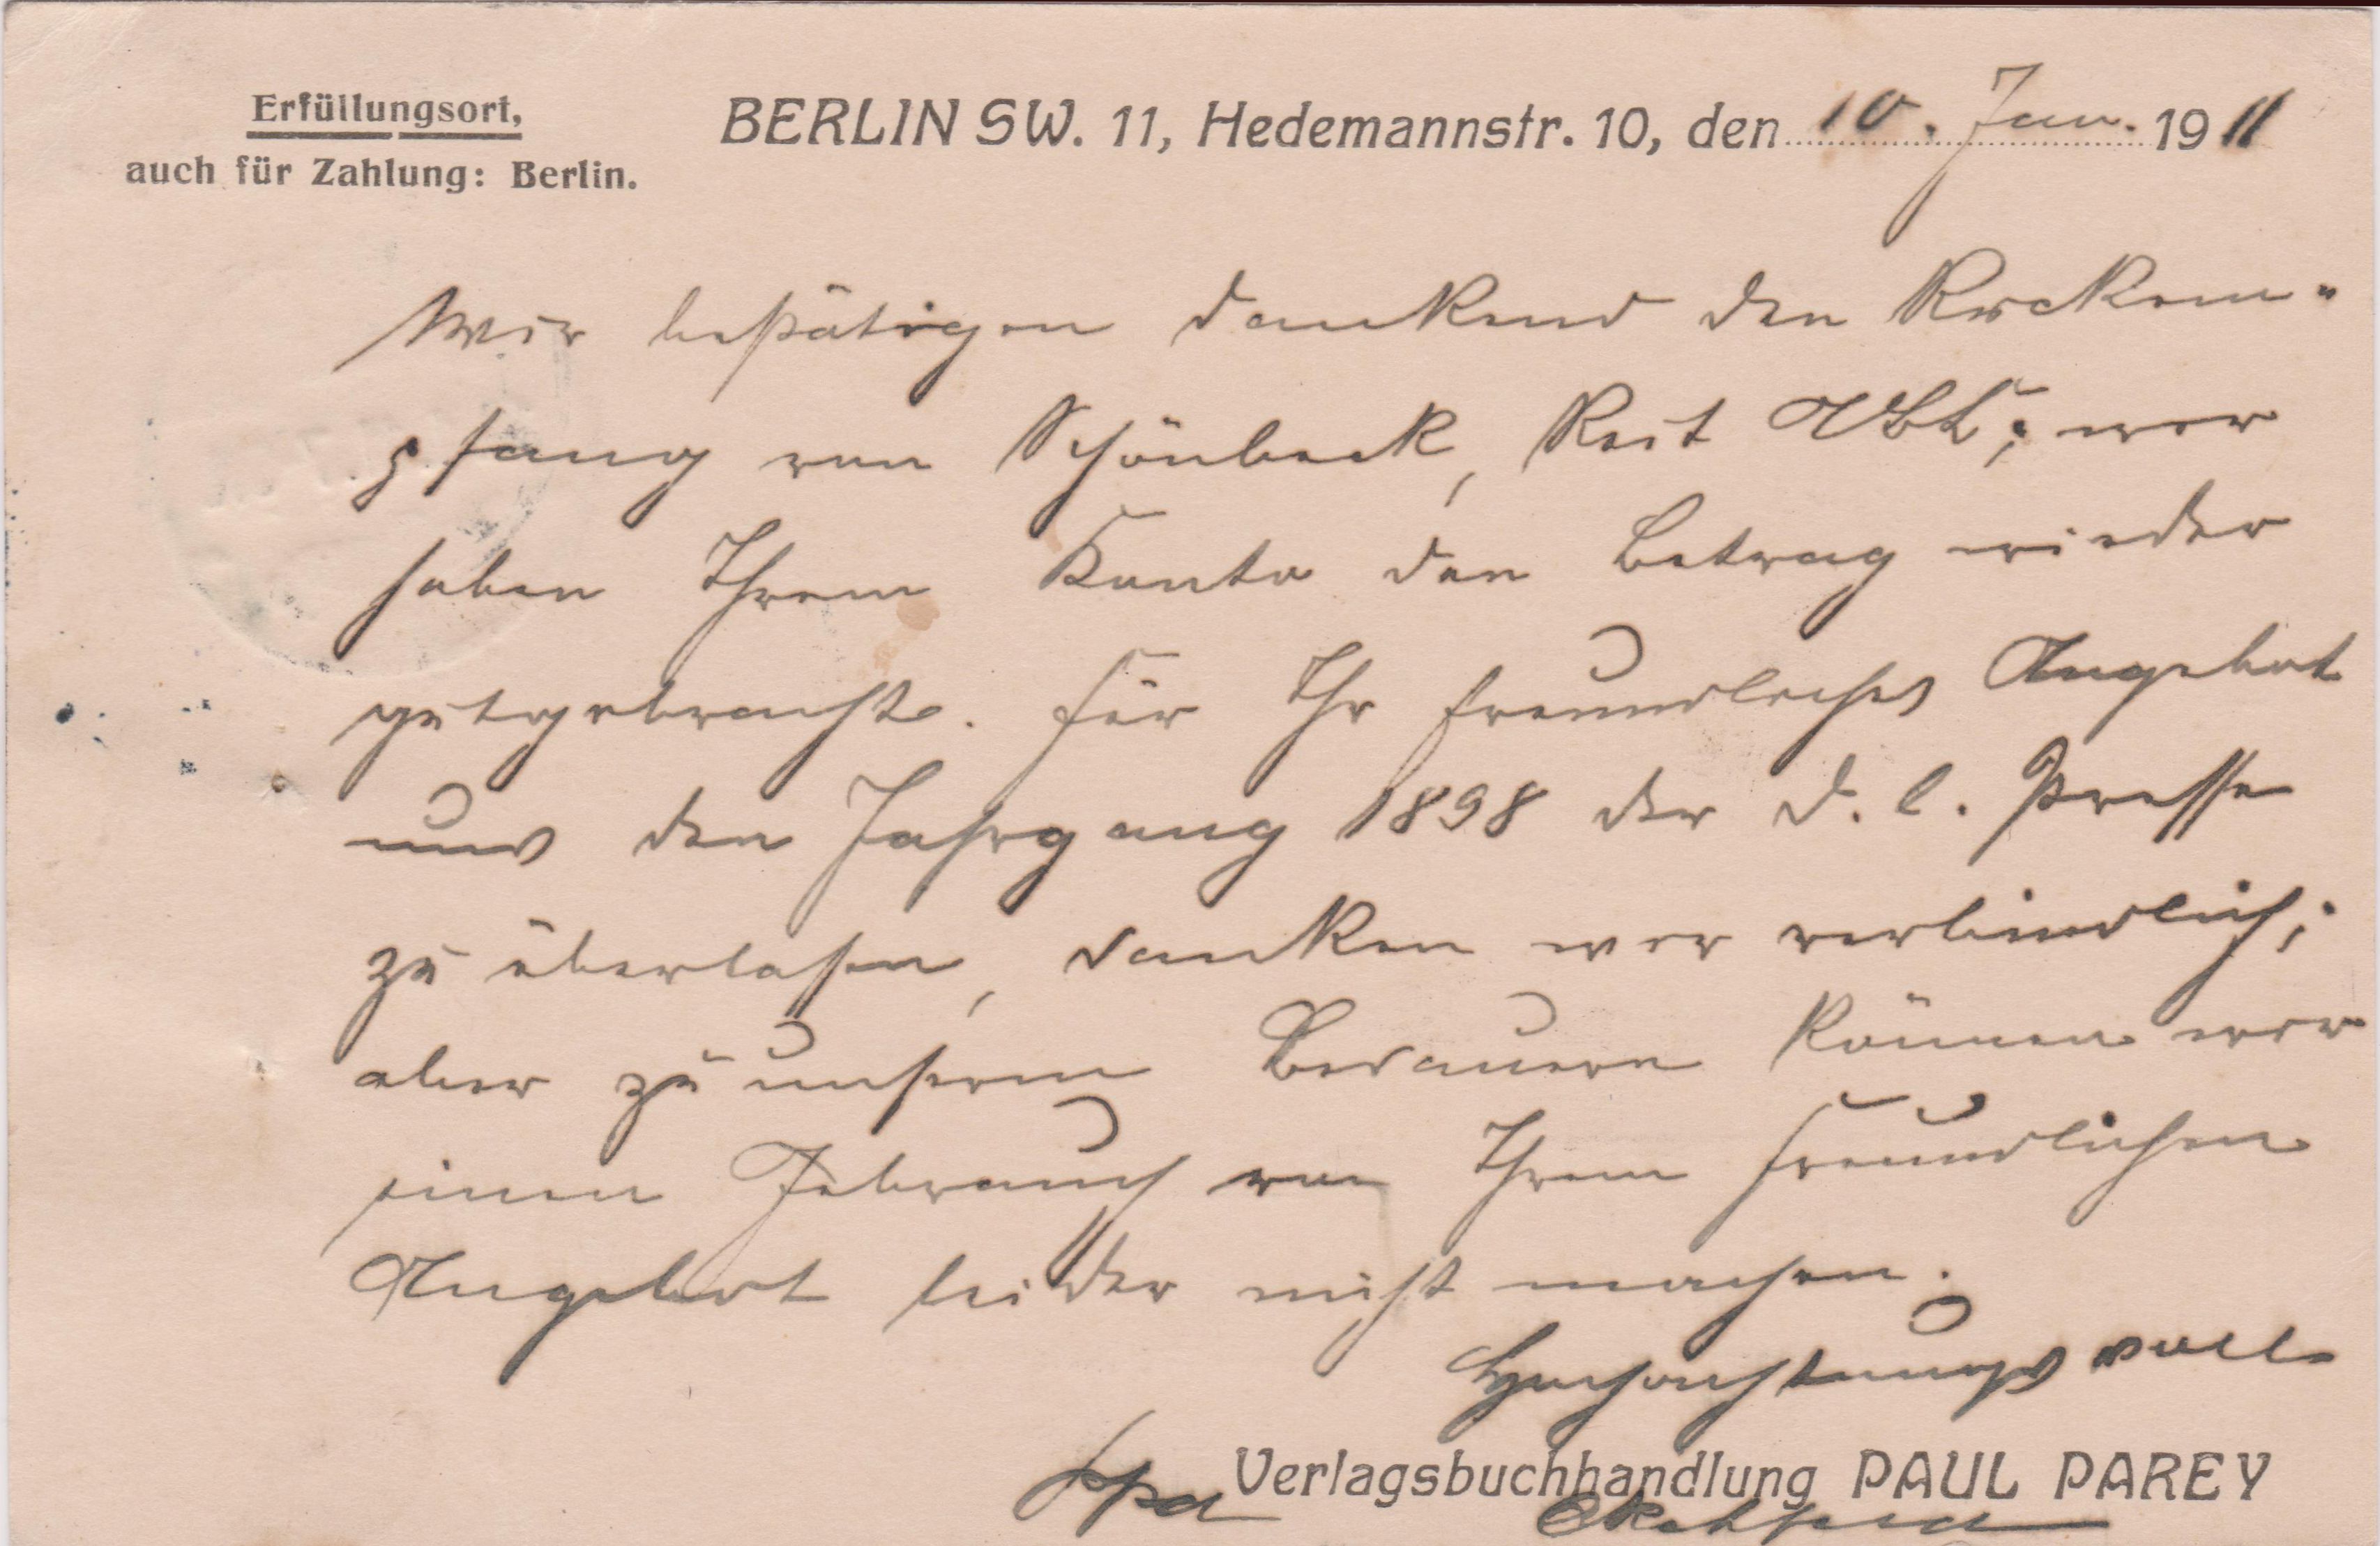 Erfüllungsort,
auch für Zahlung: Berlin.
BERLIN SW. 11, Hedemannstr. 10, den 10. Jan. 1911
Wir bestätigen dankend den Rückem-
pfang von Schönbeck, Reit ABC; wir
haben Ihrem Konto den Betrag wieder
gutgebracht. Für Ihr freundliches Angebot
uns den Jahrgang 1898 der d. l. Presse
zu überlassen, danken wir verbindlich;
aber zu unserem Bedauern können wir
einen Gebrauch von Ihrem freundlichen
Angebot leider nicht machen.
Hochachtungsvoll
ppa Verlagsbuchhandlung PAUL PAREY